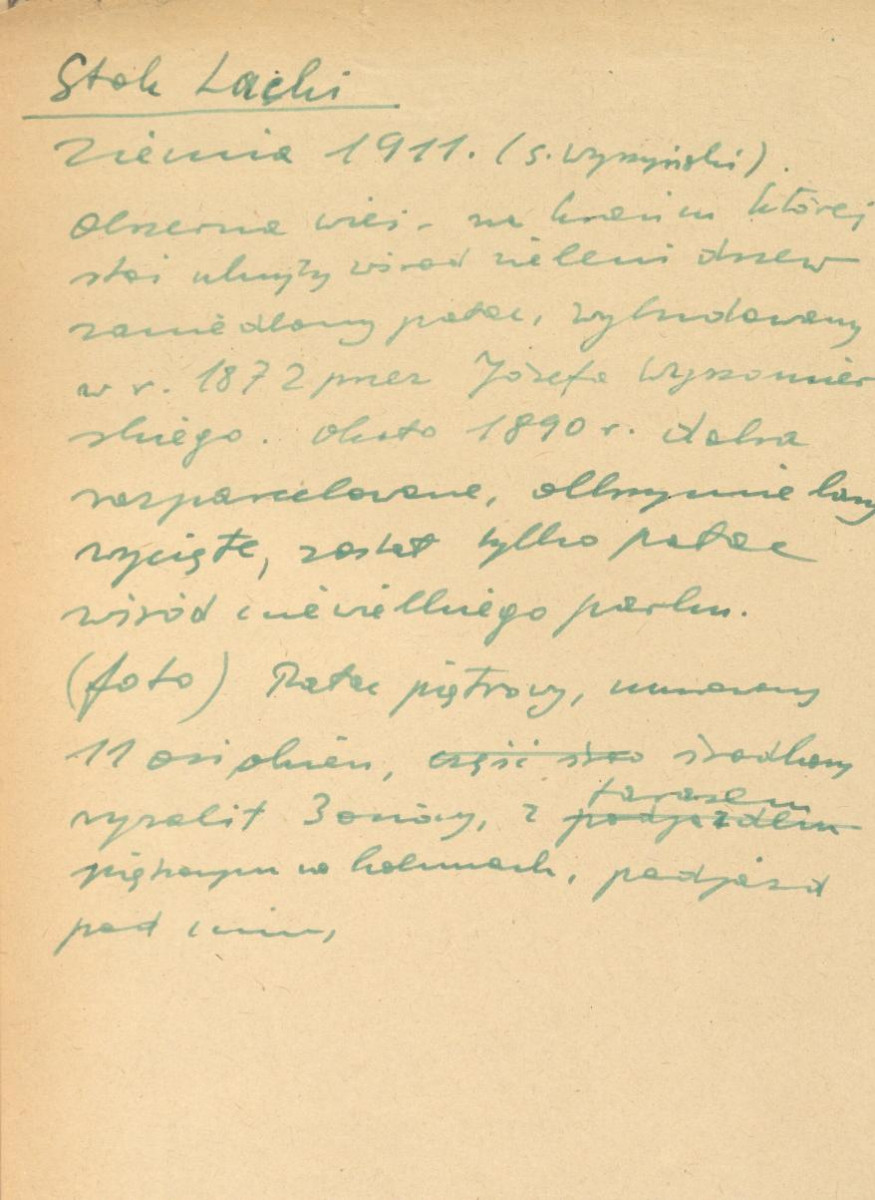 Stok Lacki
Ziemia 1911. (S. Wyszyński).
Obszerna wieś - na krańcu której
stoi ukryty wśród zieleni drzew
zaniedbany pałac, wybudowany
w r. 1872 przez Józefa Wyszomier
skiego. Około 1890 r. dobra
rozparcelowane, olbrzymie lasy
wycięte, został tylko pałac
wśród niewielkiego parku.
(foto) Pałac piętrowy, murowany
11 osi okien, część śro środkowy
ryzalit 3 osiowy, z podjazdem tarasem
piętrowym na kolumnach, podjazd
pod nim,